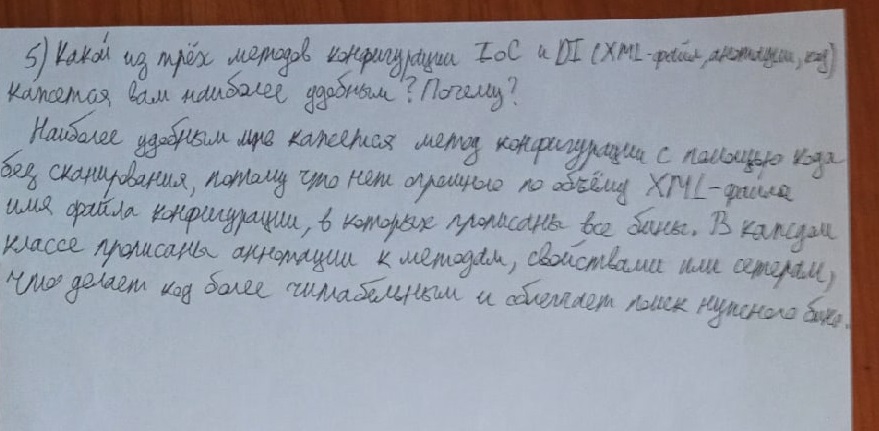 5) Какой из трёх методов конфигурации IoC и DI (XML-файл, анотации, код)
кажется вам наиболее удобным? Почему?
Наиболее удобным мне кажется метод конфигурации с помощью кода
без сканирования, потому что нет огромного по объёму XML-файла
имя файла конфигурации, в которых прописаны все бины. В каждом
классе прописаны аннотации к методам, свойствами или сетерам,
что делает код более читабельным и облегчает поиск нужного бина.